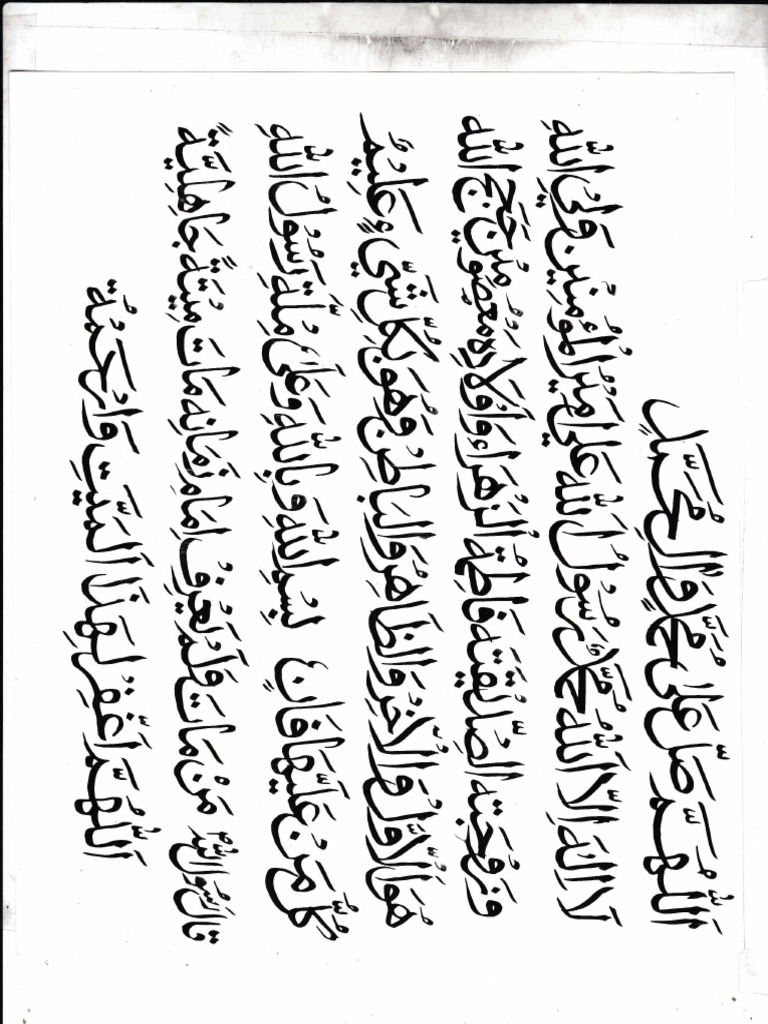 اَللّٰهُمَّ صَلِّ عَلٰى مُحَمَّدٍ وَّاٰلِ مُحَمَّدٍ
لَا اِلٰهَ اِلَّا اللّٰهُ مُحَمَّدٌ رَّسُوْلُ اللّٰهِ عَلِيٌّ اَمِيْرُ الْمُؤْمِنِيْنَ وَلِيُّ اللّٰهِ
وَزَوْجَتِهِ الصِّدِّيْقَتِهَ فَاطِمَةُ الزَّهْرَاءِ وَاَوْلَادِهٖ مَعْصُوْمِيْنَ مِنْ حُجَجِ اللّٰهِ
هُوَ الْاَوَّلُ وَالْاٰخِرُ وَالظَّاهِرُ وَالْبَاطِنُ وَهُوَ بِكُلِّ شَيْءٍ عَلِيْمٌ
كُلُّ مَنْ عَلَيْهَا فَانٍ بِسْمِ اللّٰهِ وَبِاللّٰهِ وَعَلٰى مِلَّةِ رَسُوْلِ اللّٰهِ
قَالَ رَسُوْلُ اللّٰهِ مَنْ مَاتَ وَلَمْ يَعْرِفْ اِمَامَ زَمَانِهٖ مَاتَ مِيْتَةً جَاهِلِيَّةً
اَللّٰهُمَّ اغْفِرْ لِهٰذَا الْمَيِّتِ وَارْحَمْهُ